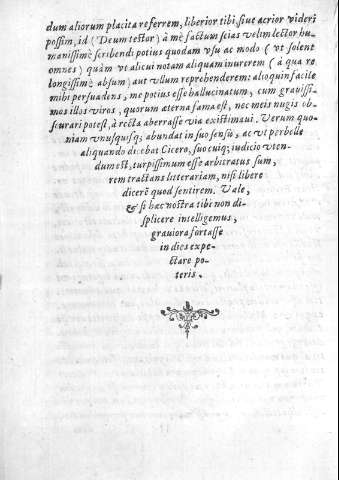 dum aliorum placita referrem, liberior tibi, siue acrior videri
possim, id (Deum testor) à mè factum scias velim lector hu-
manissimè scribendi potius quodam vsu ac modo (vt solent
omnes) quàm vt alicui notam aliquam inurerem (à qua re
longissimè absum) aut vllum reprehenderem: alioquin facile
mihi persuadens, me potius esse hallucinatum, cum grauissi-
mos illos viros, quorum æterna fama est, nec meis nugis ob-
scurari potest, à recta aberrasse via existimaui. Verum quo-
niam vnusquisq; abundat in suo sensu, ac vt perbelle
aliquando dicebat Cicero, suo cuiq; iudicio vten-
dum est, turpissimum esse arbitratus sum,
rem tractans litterariam, nisi libere
dicerē quod sentirem. Vale,
& si hæc nostra tibi non di-
splicere intelligemus,
grauiora fortasse
in dies expe-
ctare po-
teris.